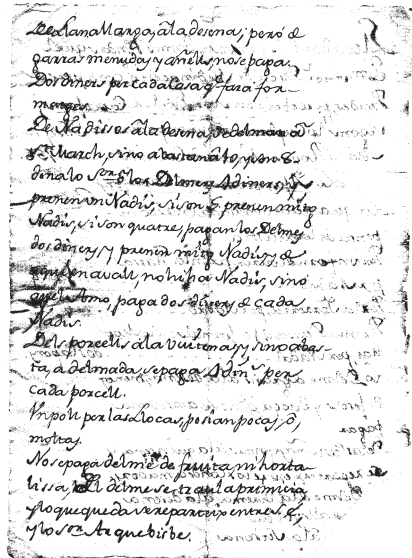 De Llana Llarga, a la desena; peró de
garras menudas y añells, nos e paga.
Dos diners per cada Casa q. fara for-
matges.
De Nadissos a la desena, se delman a
St. March, sino abastan a 10, y son 8.
dinals Sor. Dlos Delmers 4 diners, y
prenen un Nadis, si son 5, prenen mitg
Nadis, si son quatre, pagan los Delmes
dos diners, y prenen mitg Nadis, y de
aqui en avall, no hi ha Nadis, sino
quel Amo, paga dos diners de cada
Nadis.
Dels porcells a la vuitena, y sino abas-
ta, a delmada se paga 4 dins. per
cada porcell.
Un poll per las Llocas, posian pocas, ó,
moltas.
No se paga delme de fruita, ni horta-
lissa, Del delme se trau la primicia,
y lo que queda se reparteix entre S. E.,
y lo Sor. Arquebisbe.